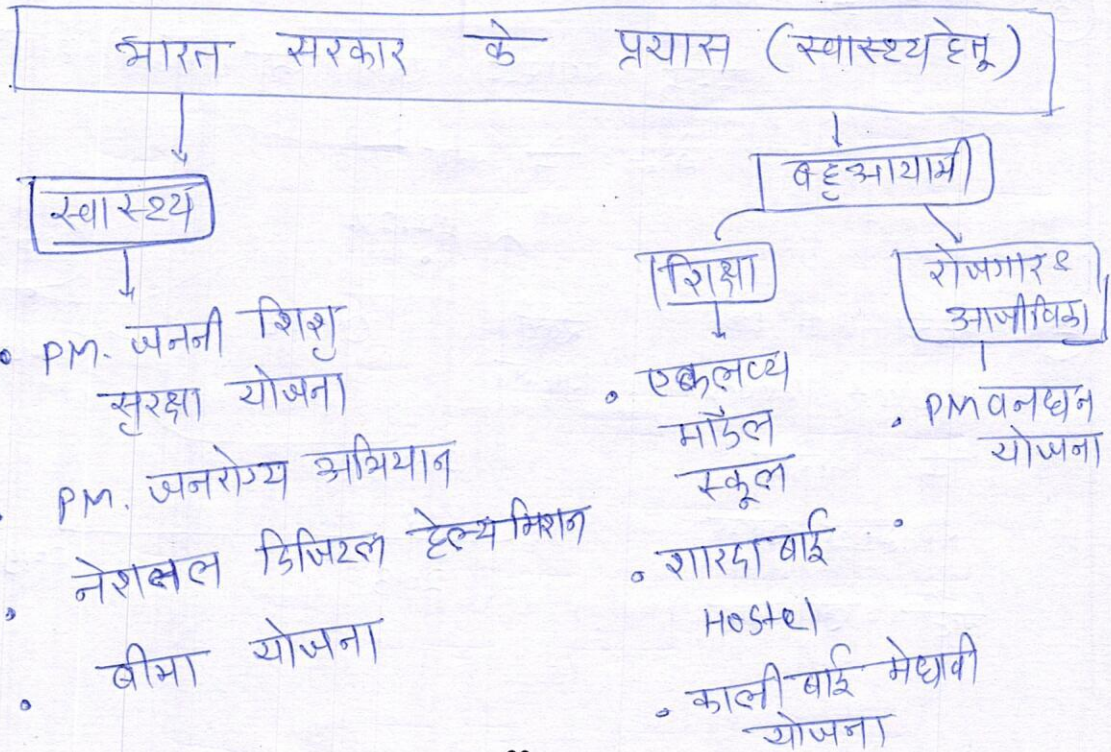 भारत सरकार के प्रयास (स्वास्थ्य हेतू)
स्वास्थ्य
• PM. जननी शिशु
सुरक्षा योजना
• PM. जनरोग्य अभियान
• नेशनल डिजिटल हेल्थ मिशन
• बीमा योजना
बहुआयामी
शिक्षा
• एकलव्य
मॉडल
स्कूल
• शारदा बाई
Hostel
• काली बाई मेधावी
योजना
रोजगार &
आजीविका
• PM वनधन
योजना
•